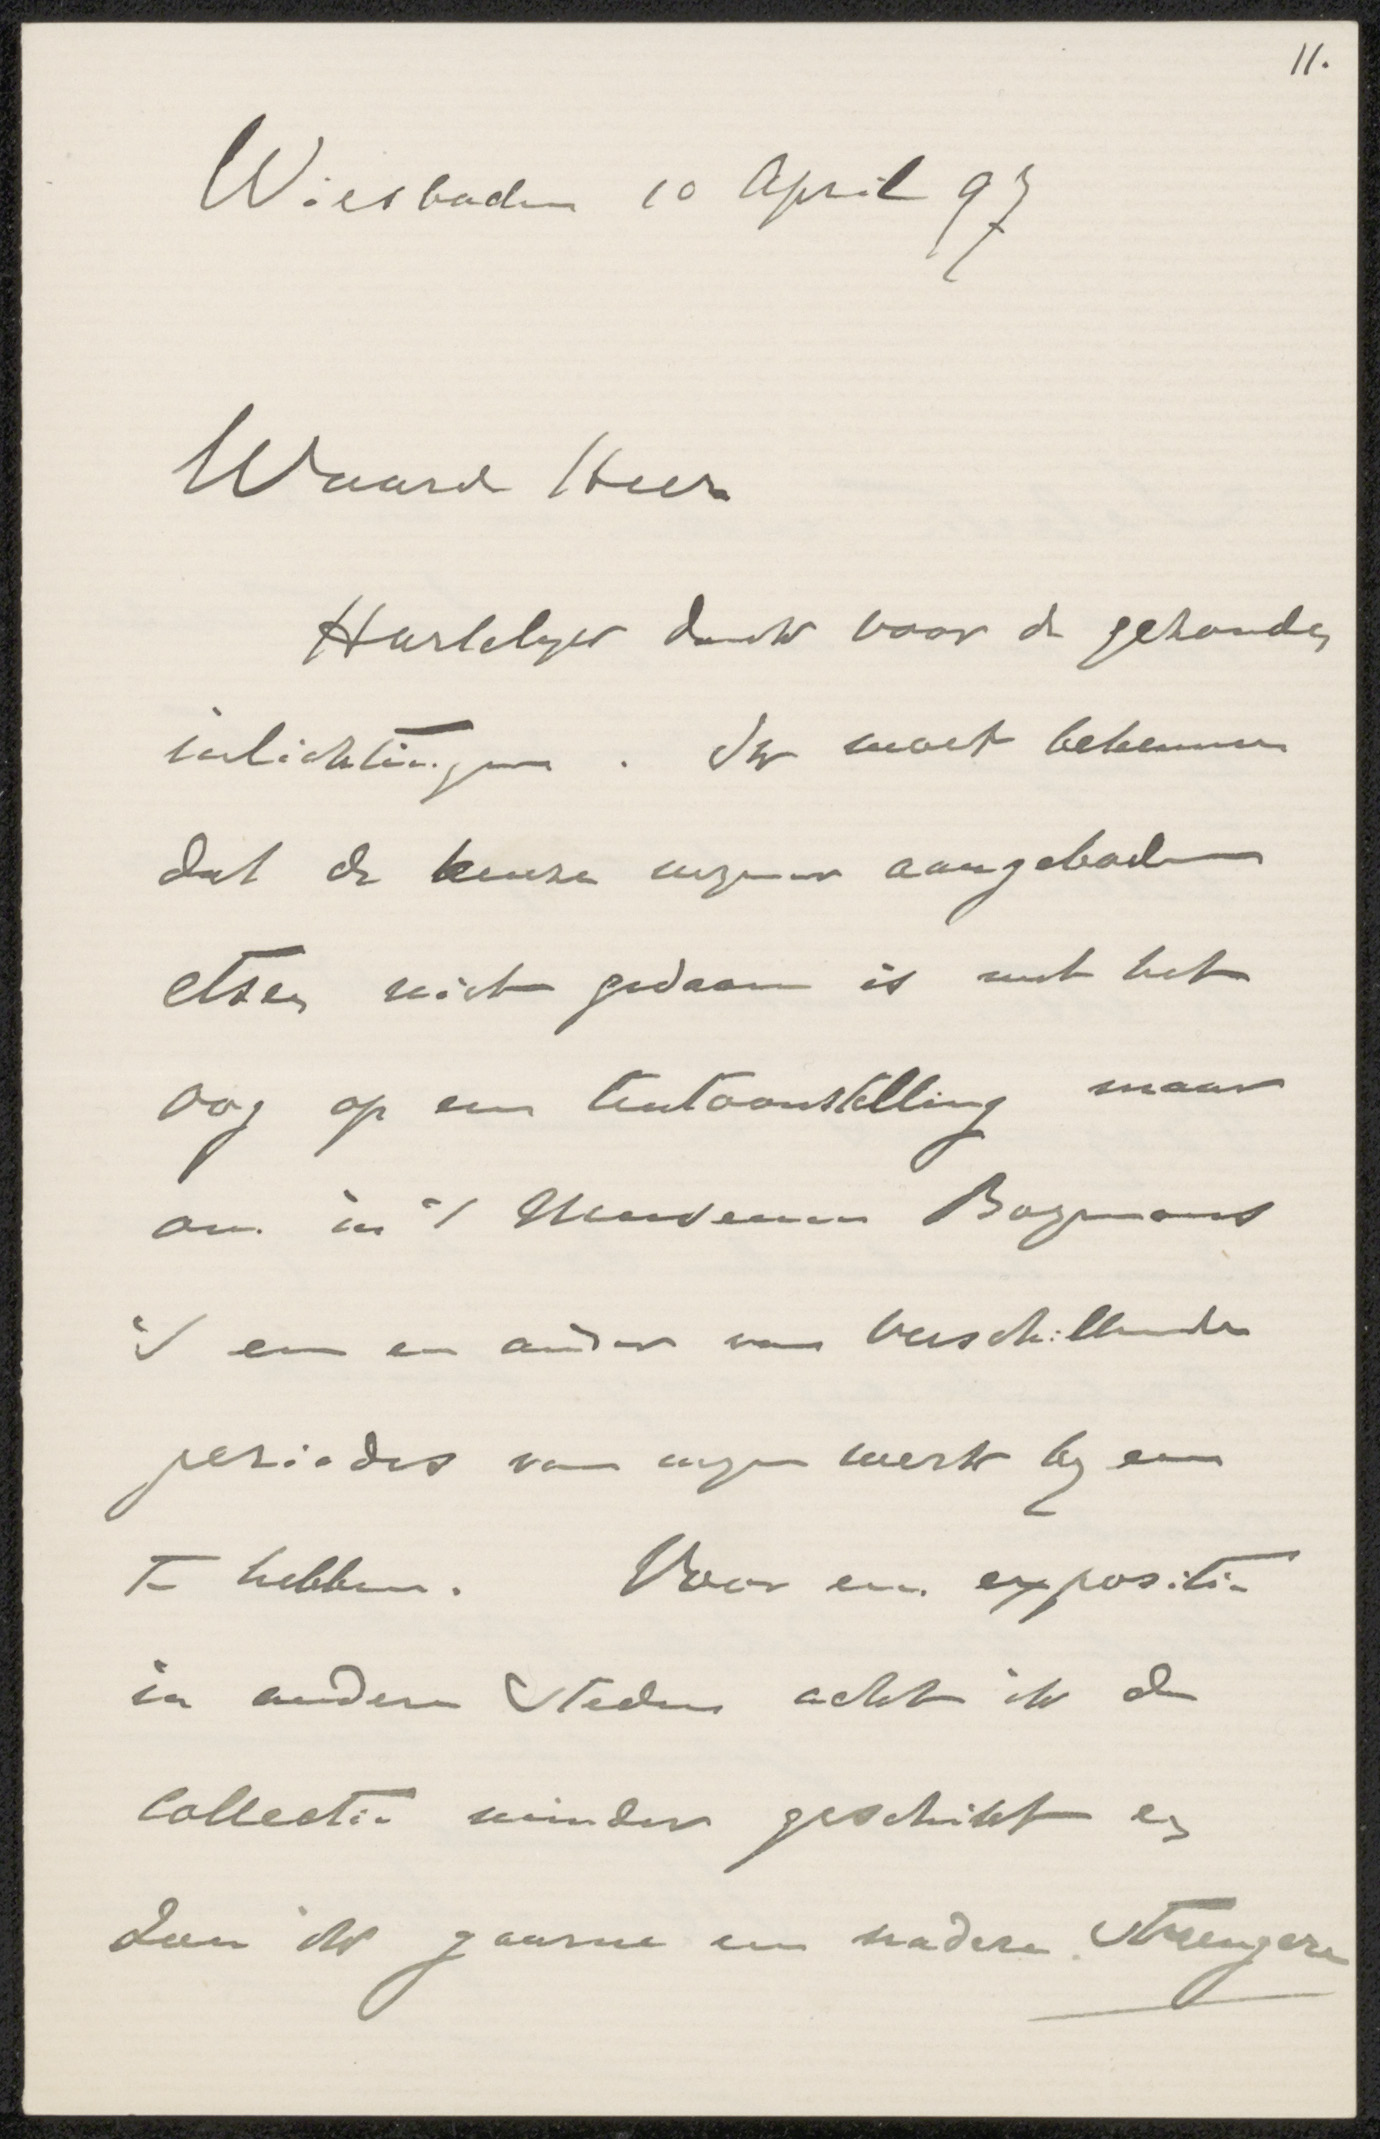 11.
Wiesbaden 10 April 97
Waarde Heer
Hartelyk dank voor de gezonden
inlichtingen. Ik moet bekennen
dat de keuze myner aangeboden
etsen niet gedaan is met het
oog op een tentoonstelling maar
om in 't Museum Boymans
't een en ander van verschillende
periodes van myn werk by een
te hebben. Voor een expositie
in andere steden acht ik de
collectie minder geschikt en
zou ik gaarne een nadere strengere